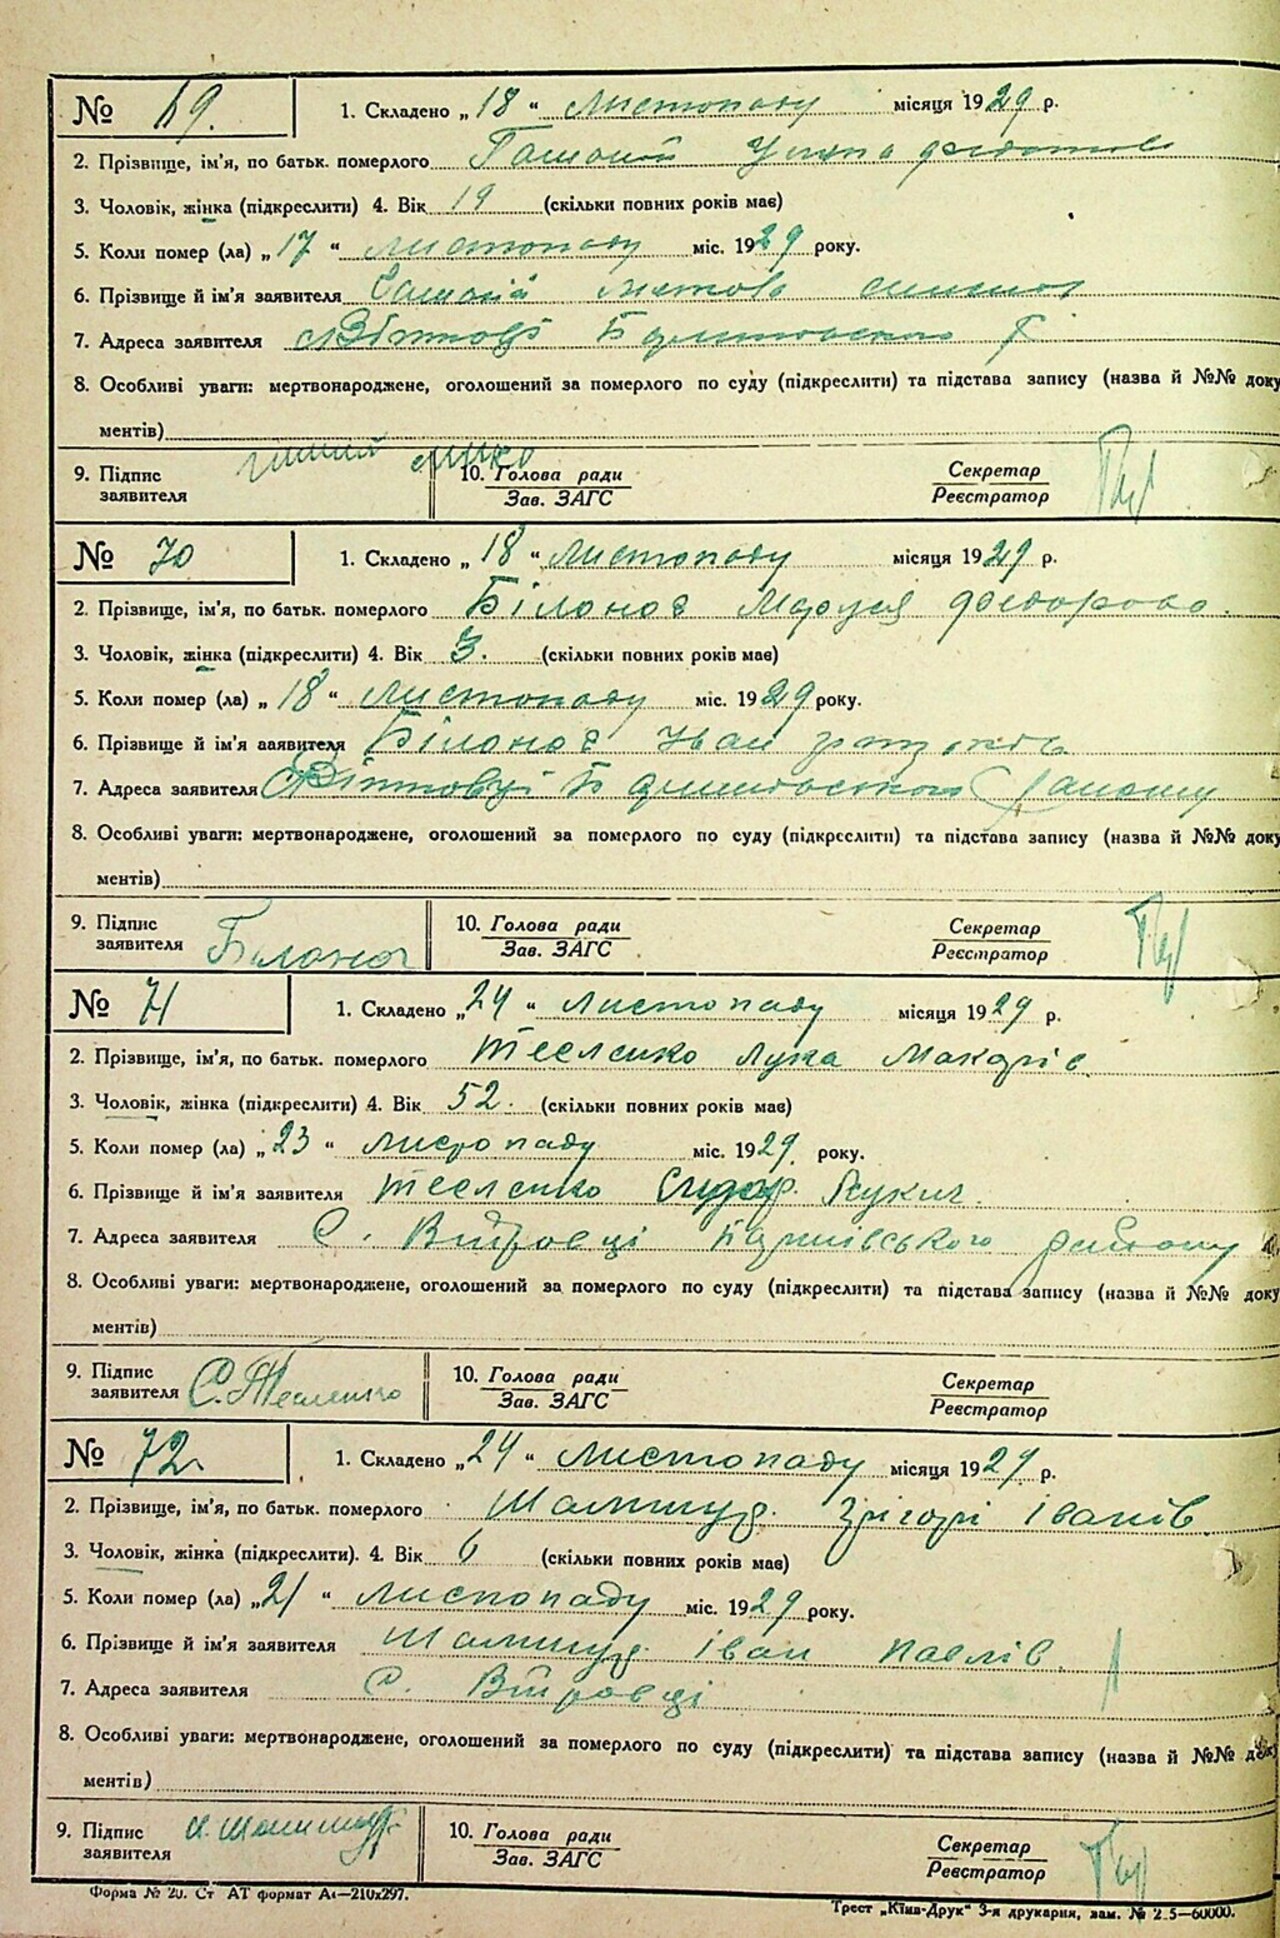 № 69. 1. Складено „18“ Листопаду місяця 1929 р.
2. Прізвище, ім'я, по батьк. померлого
3. Чоловік, жінка (підкреслити) 4. Вік 19 (скільки повних років має)
5. Коли помер (ла) „17“ листопаду міс. 1929 року.
6. Прізвище й ім'я заявителя
7. Адреса заявителя
8. Особливі уваги: мертвонароджене, оголошений за померлого по суду (підкреслити) та підстава запису (назва й №№ доку
ментів)
9. Підпис заявителя 10. Голова ради Секретар
Зав. ЗАГС Реєстратор
№ 70 1. Складено „18“ Листопаду місяця 1929 р.
2. Прізвище, ім'я, по батьк. померлого Білоног Маруся Федорова.
3. Чоловік, жінка (підкреслити) 4. Вік 3. (скільки повних років має)
5. Коли помер (ла) „18“ листопаду міс. 1929 року.
6. Прізвище й ім'я заявителя Білоног Іван
7. Адреса заявителя
8. Особливі уваги: мертвонароджене, оголошений за померлого по суду (підкреслити) та підстава запису (назва й №№ доку
ментів)
9. Підпис заявителя Білоног 10. Голова ради Секретар
Зав. ЗАГС Реєстратор
№ 71 1. Складено „24“ Листопаду місяця 1929 р.
2. Прізвище, ім'я, по батьк. померлого Тесленко Лука Макарів.
3. Чоловік, жінка (підкреслити) 4. Вік 52. (скільки повних років має)
5. Коли помер (ла) „23“ листопаду міс. 1929. року.
6. Прізвище й ім'я заявителя Тесленко Сидор Лукич.
7. Адреса заявителя С. Вітровці району
8. Особливі уваги: мертвонароджене, оголошений за померлого по суду (підкреслити) та підстава запису (назва й №№ доку
ментів)
9. Підпис заявителя С. Тесленко 10. Голова ради Секретар
Зав. ЗАГС Реєстратор
№ 72. 1. Складено „24“ Листопаду місяця 1929. р.
2. Прізвище, ім'я, по батьк. померлого Григорі Іванів.
3. Чоловік, жінка (підкреслити). 4. Вік 6 (скільки повних років має)
5. Коли помер (ла) „21“ листопаду міс. 1929 року.
6. Прізвище й ім'я заявителя Іван Павлів.
7. Адреса заявителя С. Вітровці
8. Особливі уваги: мертвонароджене, оголошений за померлого по суду (підкреслити) та підстава запису (назва й №№ доку
ментів)
9. Підпис заявителя 10. Голова ради Секретар
Зав. ЗАГС Реєстратор
Форма № 20. Ст АТ формат А4—210х297.
Трест „Київ-Друк“ 3-я друкарня, зам. № 2 5—60000.